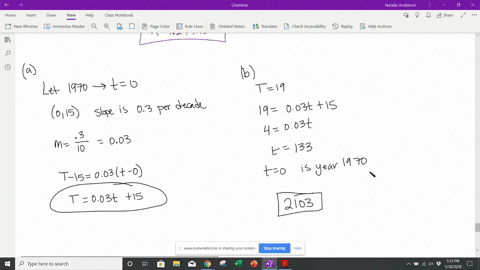 OneNote
Natalie Anderson
File Home Insert Draw History Review View Help Class Notebook
New Window Immersive Reader Page Color Rule Lines Deleted Notes Translate Check Accessibility Hide Authors
(a)
Let 1970 → t=0
(0,15) slope is 0.3 per decade
m = .3/10 = 0.03
T-15=0.03(t-0)
T = 0.03t +15
(b)
T=19
19 = 0.03t +15
4=0.03t
t = 133
t=0 is year 1970
2103
www.numerade.com is sharing your screen. Stop sharing Hide
Type here to search
5:33 PM